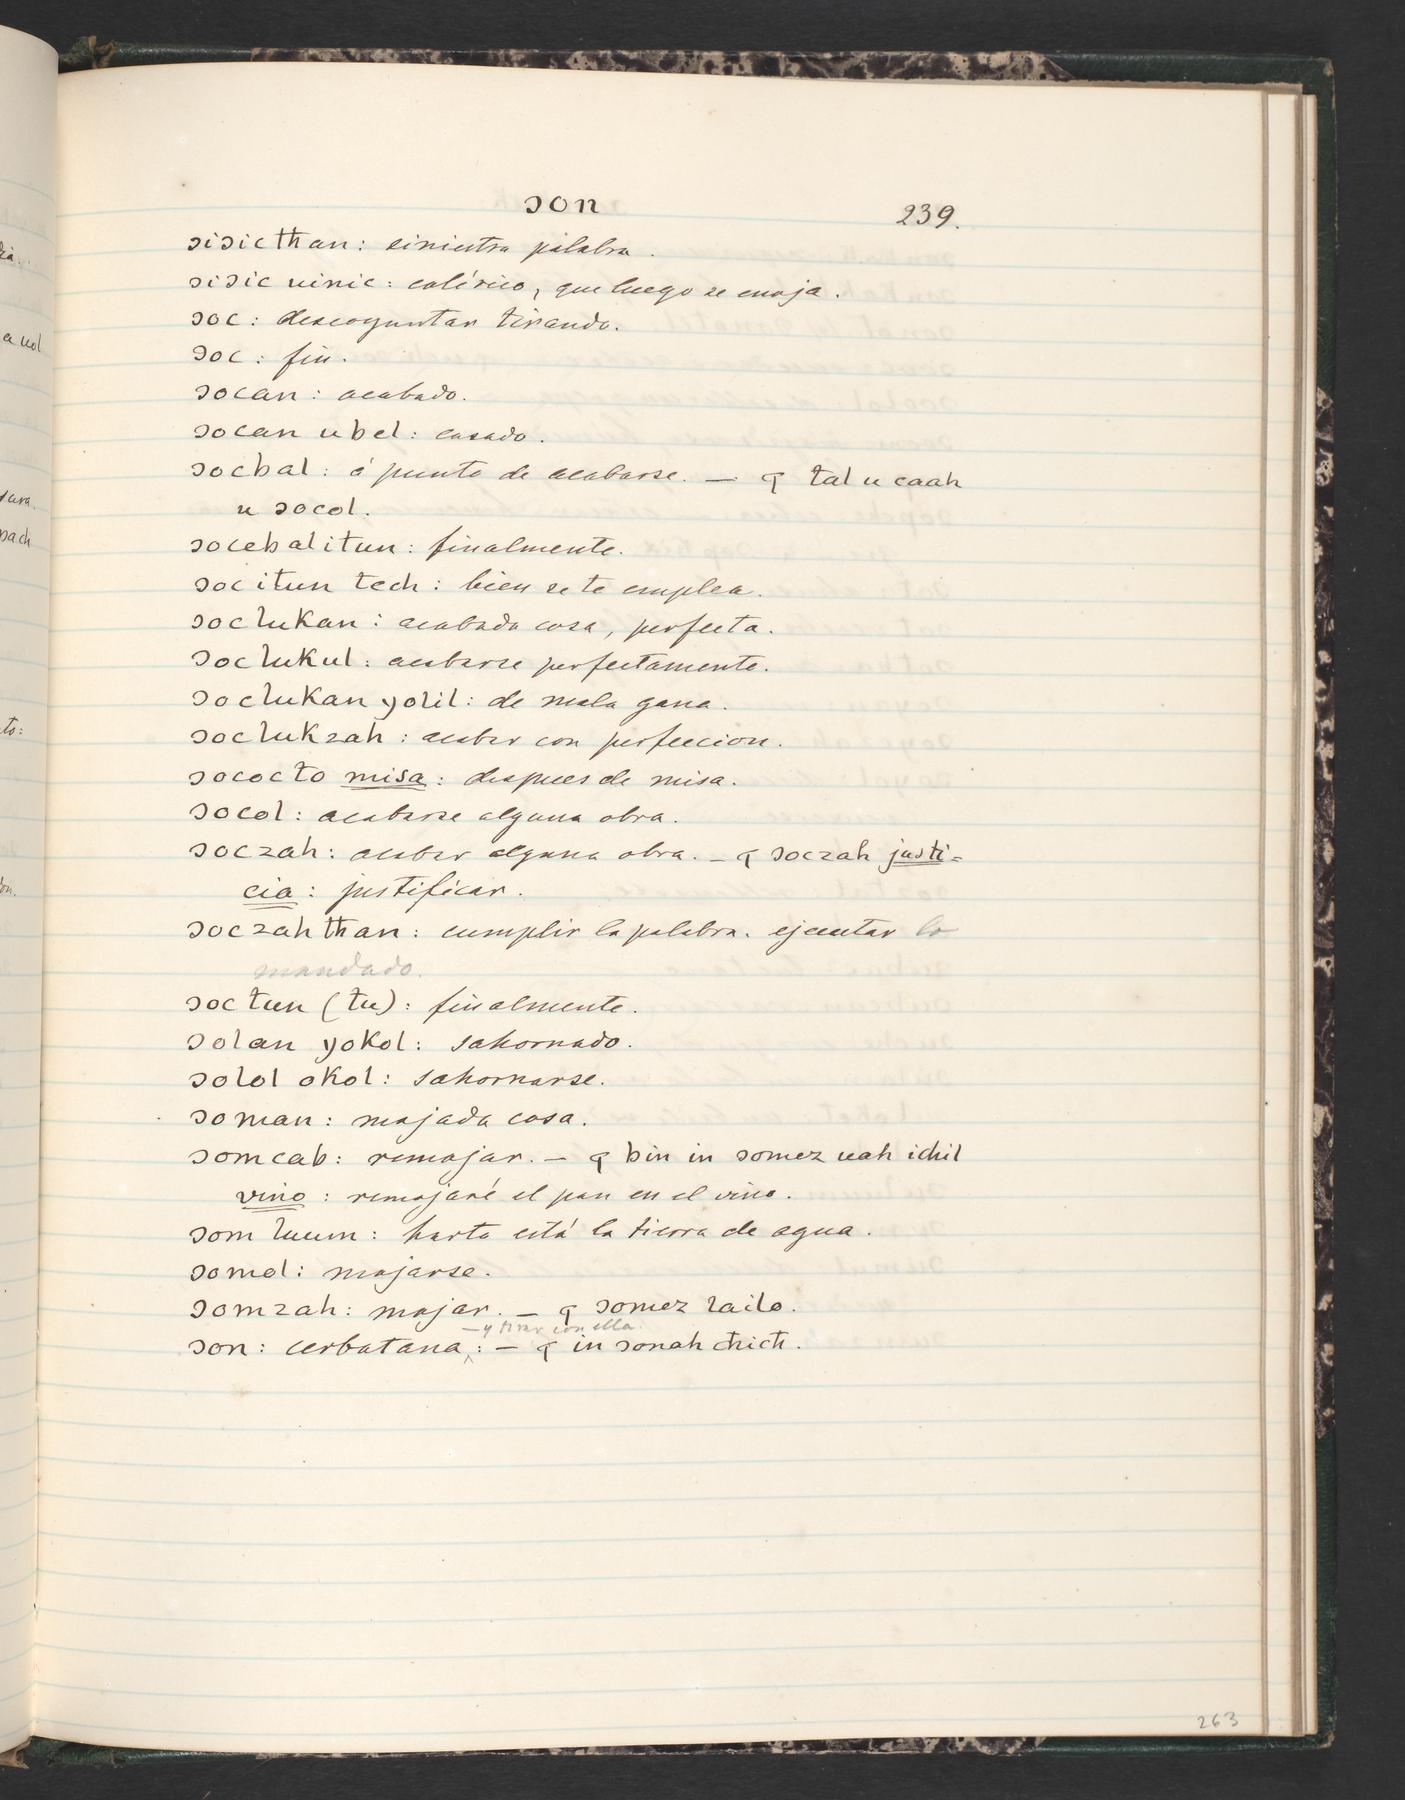 ɔon 239.
ɔiɔic than: siniestra palabra.
ɔiɔic uinic: colérico, que luego se enoja.
ɔoc: descoyuntar tirando.
ɔoc: fin.
ɔocan: acabado.
ɔocan ubel: casado.
ɔocbal: á punto de acabarse. — ꝗ tal u caah
u ɔocol.
ɔocebal itun: finalmente.
ɔoc itun tech: bien se te emplea.
ɔoclukan: acabada cosa, perfecta.
ɔoclukul: acabarse perfectamente.
ɔoclukan yolil: de mala gana.
ɔoclukzah: acabar con perfeccion.
ɔococto misa: despues de misa.
ɔocol: acabarse alguna obra.
ɔoczah: acabar alguna obra. — ꝗ ɔoczah justi-
cia: justificar.
ɔoczah than: cumplir la palabra. ejecutar lo
mandado.
ɔoc tun (tu): finalmente.
ɔolan yokol: sahornado.
ɔolol okol: sahornarse.
ɔoman: mojada cosa.
ɔomcab: remojar. — ꝗ bin in ɔomez uah ichil
vino: remojaré el pan en el vino.
ɔom luum: harta está la tierra de agua.
ɔomol: mojarse.
ɔomzah: mojar. — ꝗ ɔomez lailo.
— y tirar con ella.
ɔon: cerbatana ^: — ꝗ in ɔonah chich.
263